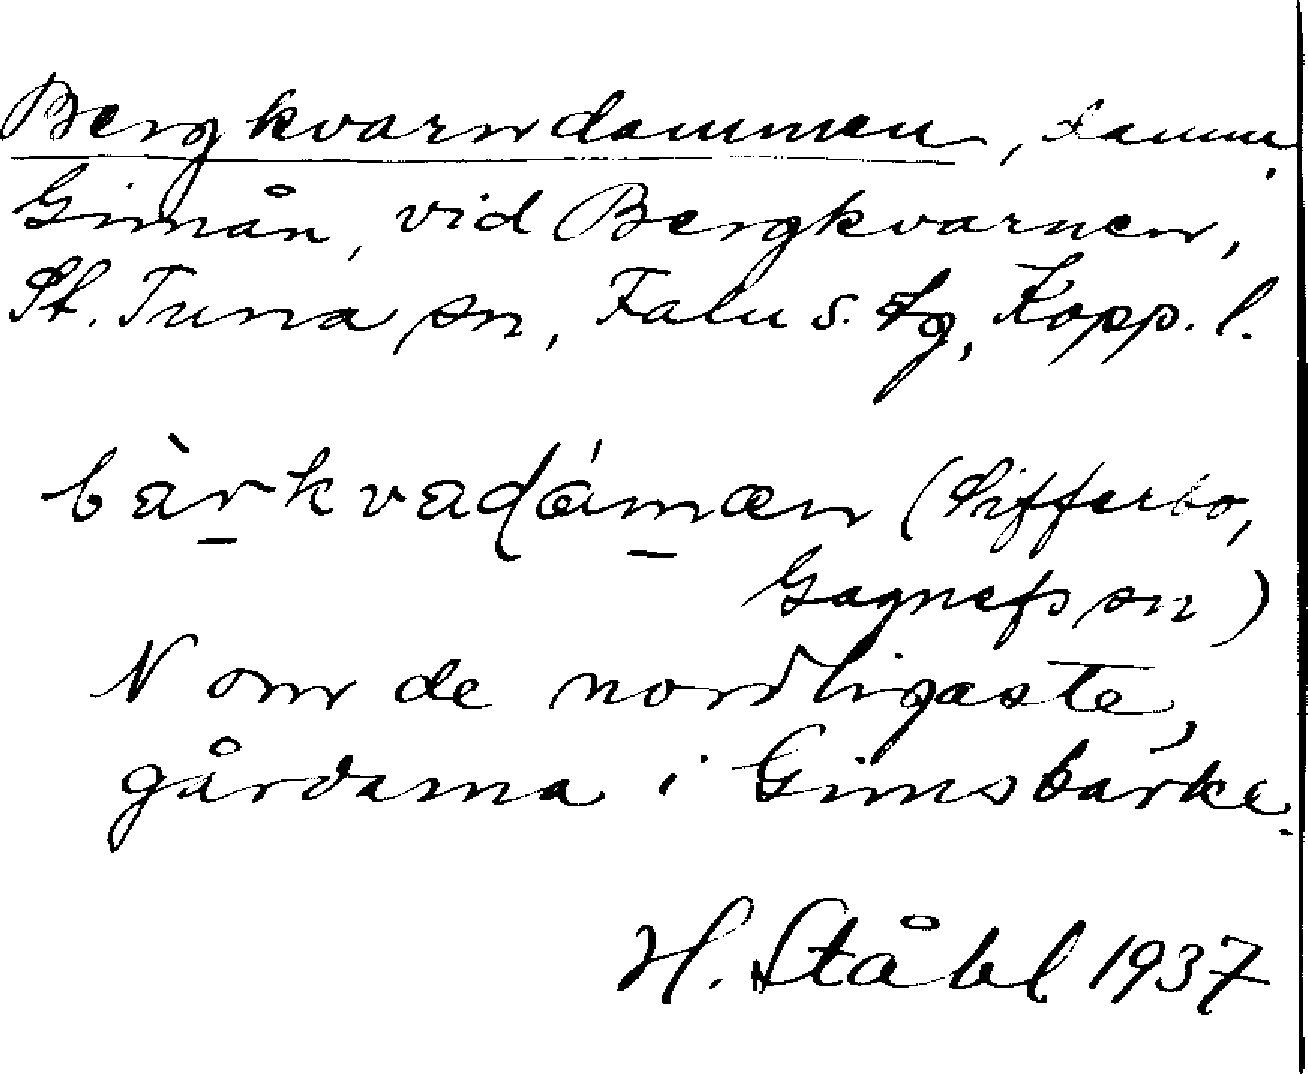 Bergkvarndammen, damm,
Gimån, vid Bergkvarnen,
St. Tuna sn, Falu s. tg, Kopp. l.
bàrkvadámæn (Sifferbo,
Gagnefs sn)
N om de nordligaste
gårdarna i Gimsbärke.
H. Ståhl 1937